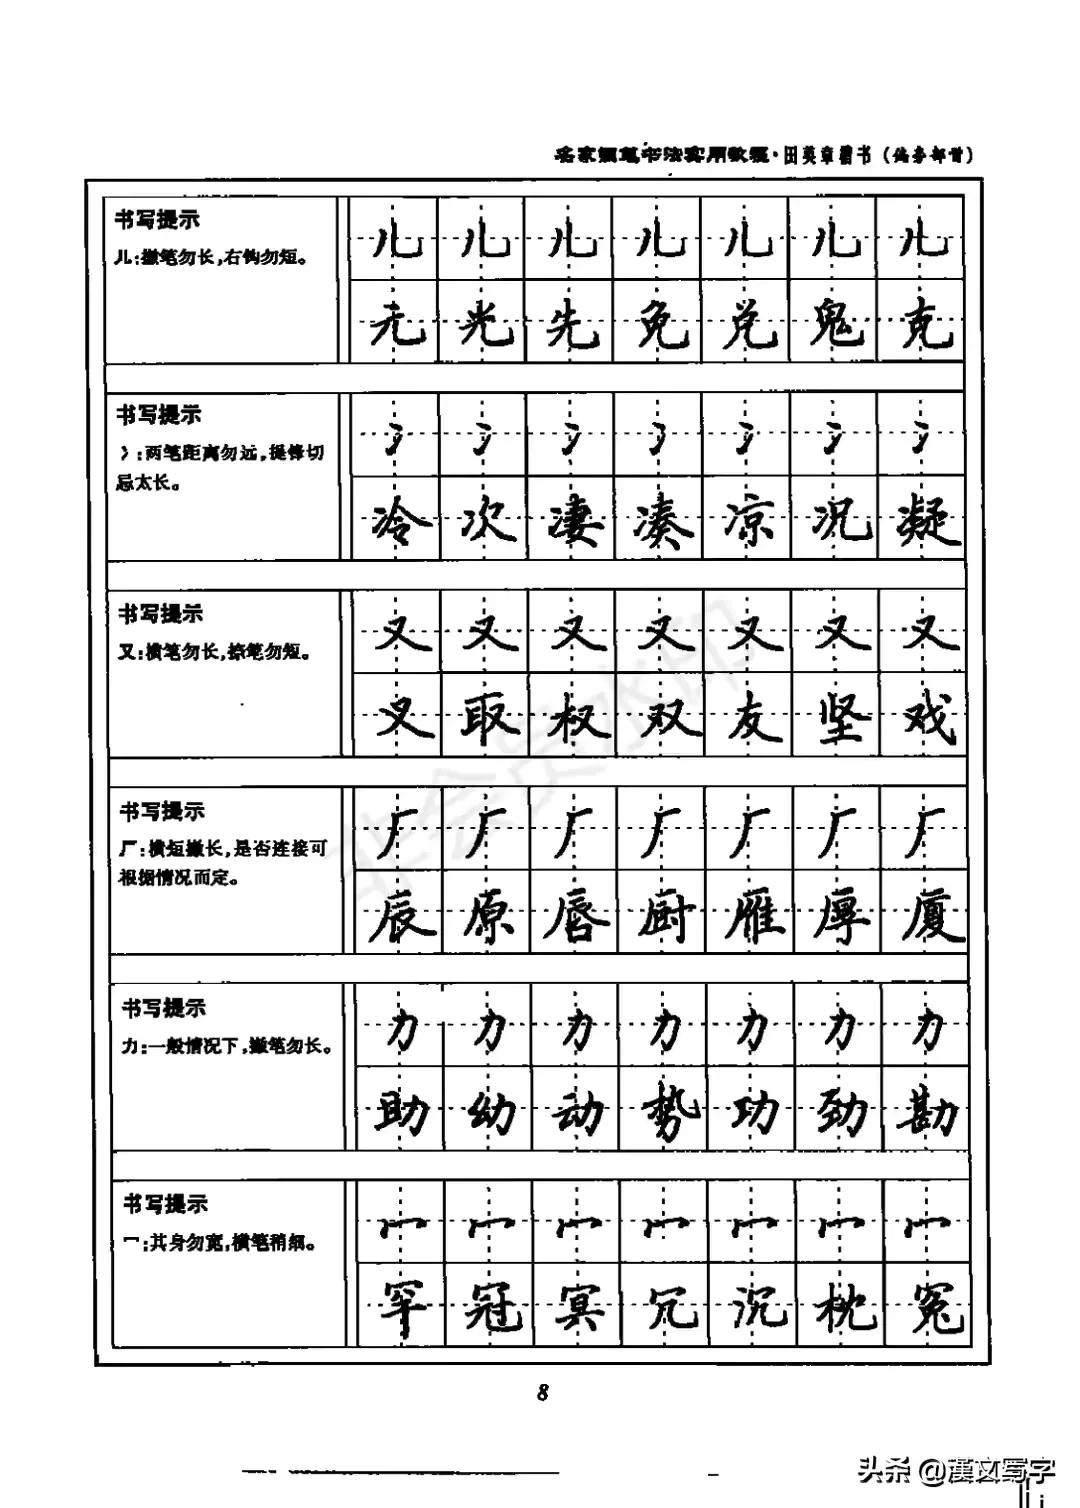 名家钢笔书法实用教程·田英章楷书（偏旁部首）
书写提示
儿:撇笔勿长,右钩勿短。
儿 儿 儿 儿 儿 儿 儿
元 光 先 免 兑 鬼 克
书写提示
冫:两笔距离勿远,提锋切
忌太长。
冫 冫 冫 冫 冫 冫 冫
冷 次 凄 凑 凉 况 凝
书写提示
又:横笔勿长,捺笔勿短。
又 又 又 又 又 又 又
叉 取 权 双 友 坚 戏
书写提示
厂:横短撇长,是否连接可
根据情况而定。
厂 厂 厂 厂 厂 厂 厂
辰 原 唇 厨 雁 厚 厦
书写提示
力:一般情况下,撇笔勿长。
力 力 力 力 力 力 力
助 幼 动 势 功 劲 勘
书写提示
冖:其身勿宽,横笔稍细。
冖 冖 冖 冖 冖 冖 冖
罕 冠 冥 冗 沉 枕 冤
非会员水印
8
头条 @漢文写字